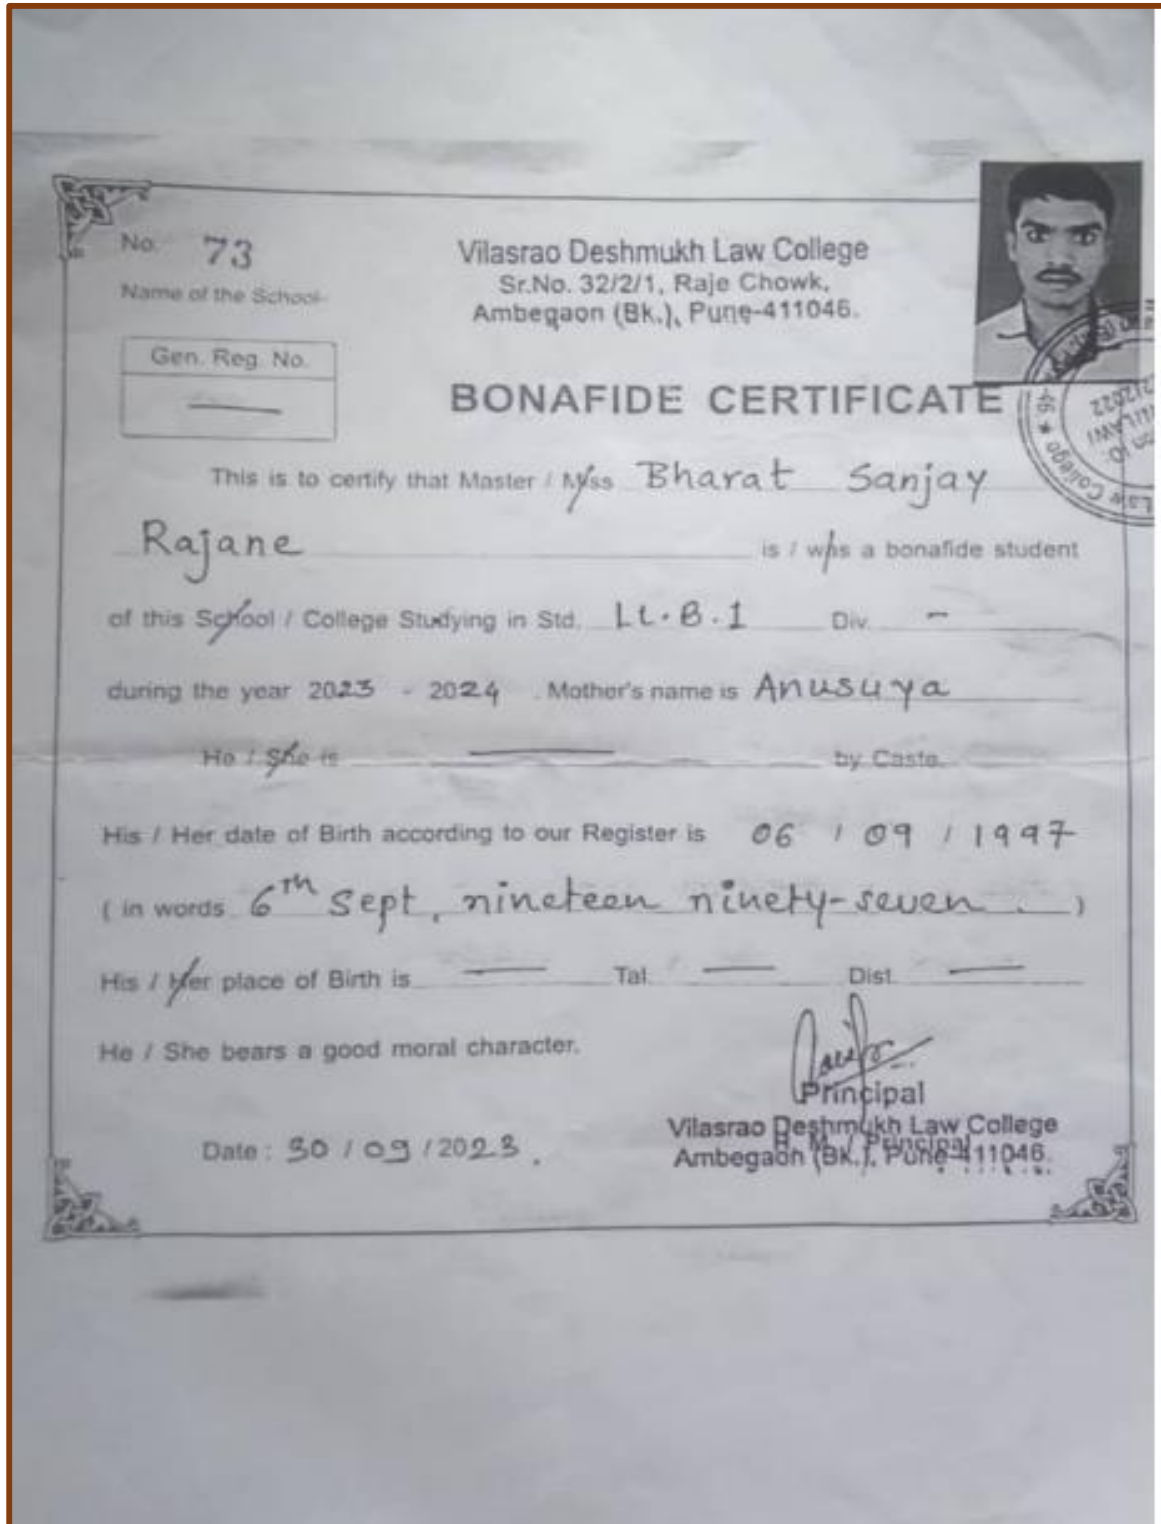 No. 73
Vilasrao Deshmukh Law College
Name of the School
Sr.No. 32/2/1, Raje Chowk,
Ambegaon (Bk.), Pune-411046.
Gen. Reg. No.
—
BONAFIDE CERTIFICATE
This is to certify that Master / Miss Bharat Sanjay
Rajane is / was a bonafide student
of this School / College Studying in Std. LL.B.I Div. -
during the year 2023 - 2024 . Mother's name is Anusuya
He / She is — by Caste.
His / Her date of Birth according to our Register is 06 / 09 / 1997
( in words 6th Sept, nineteen ninety-seven . )
His / Her place of Birth is — Tal. — Dist. —
He / She bears a good moral character.
Principal
Vilasrao Deshmukh Law College
H. M. / Principal
Ambegaon (Bk.), Pune-411046.
Date : 30 / 09 / 2023 .
Law College